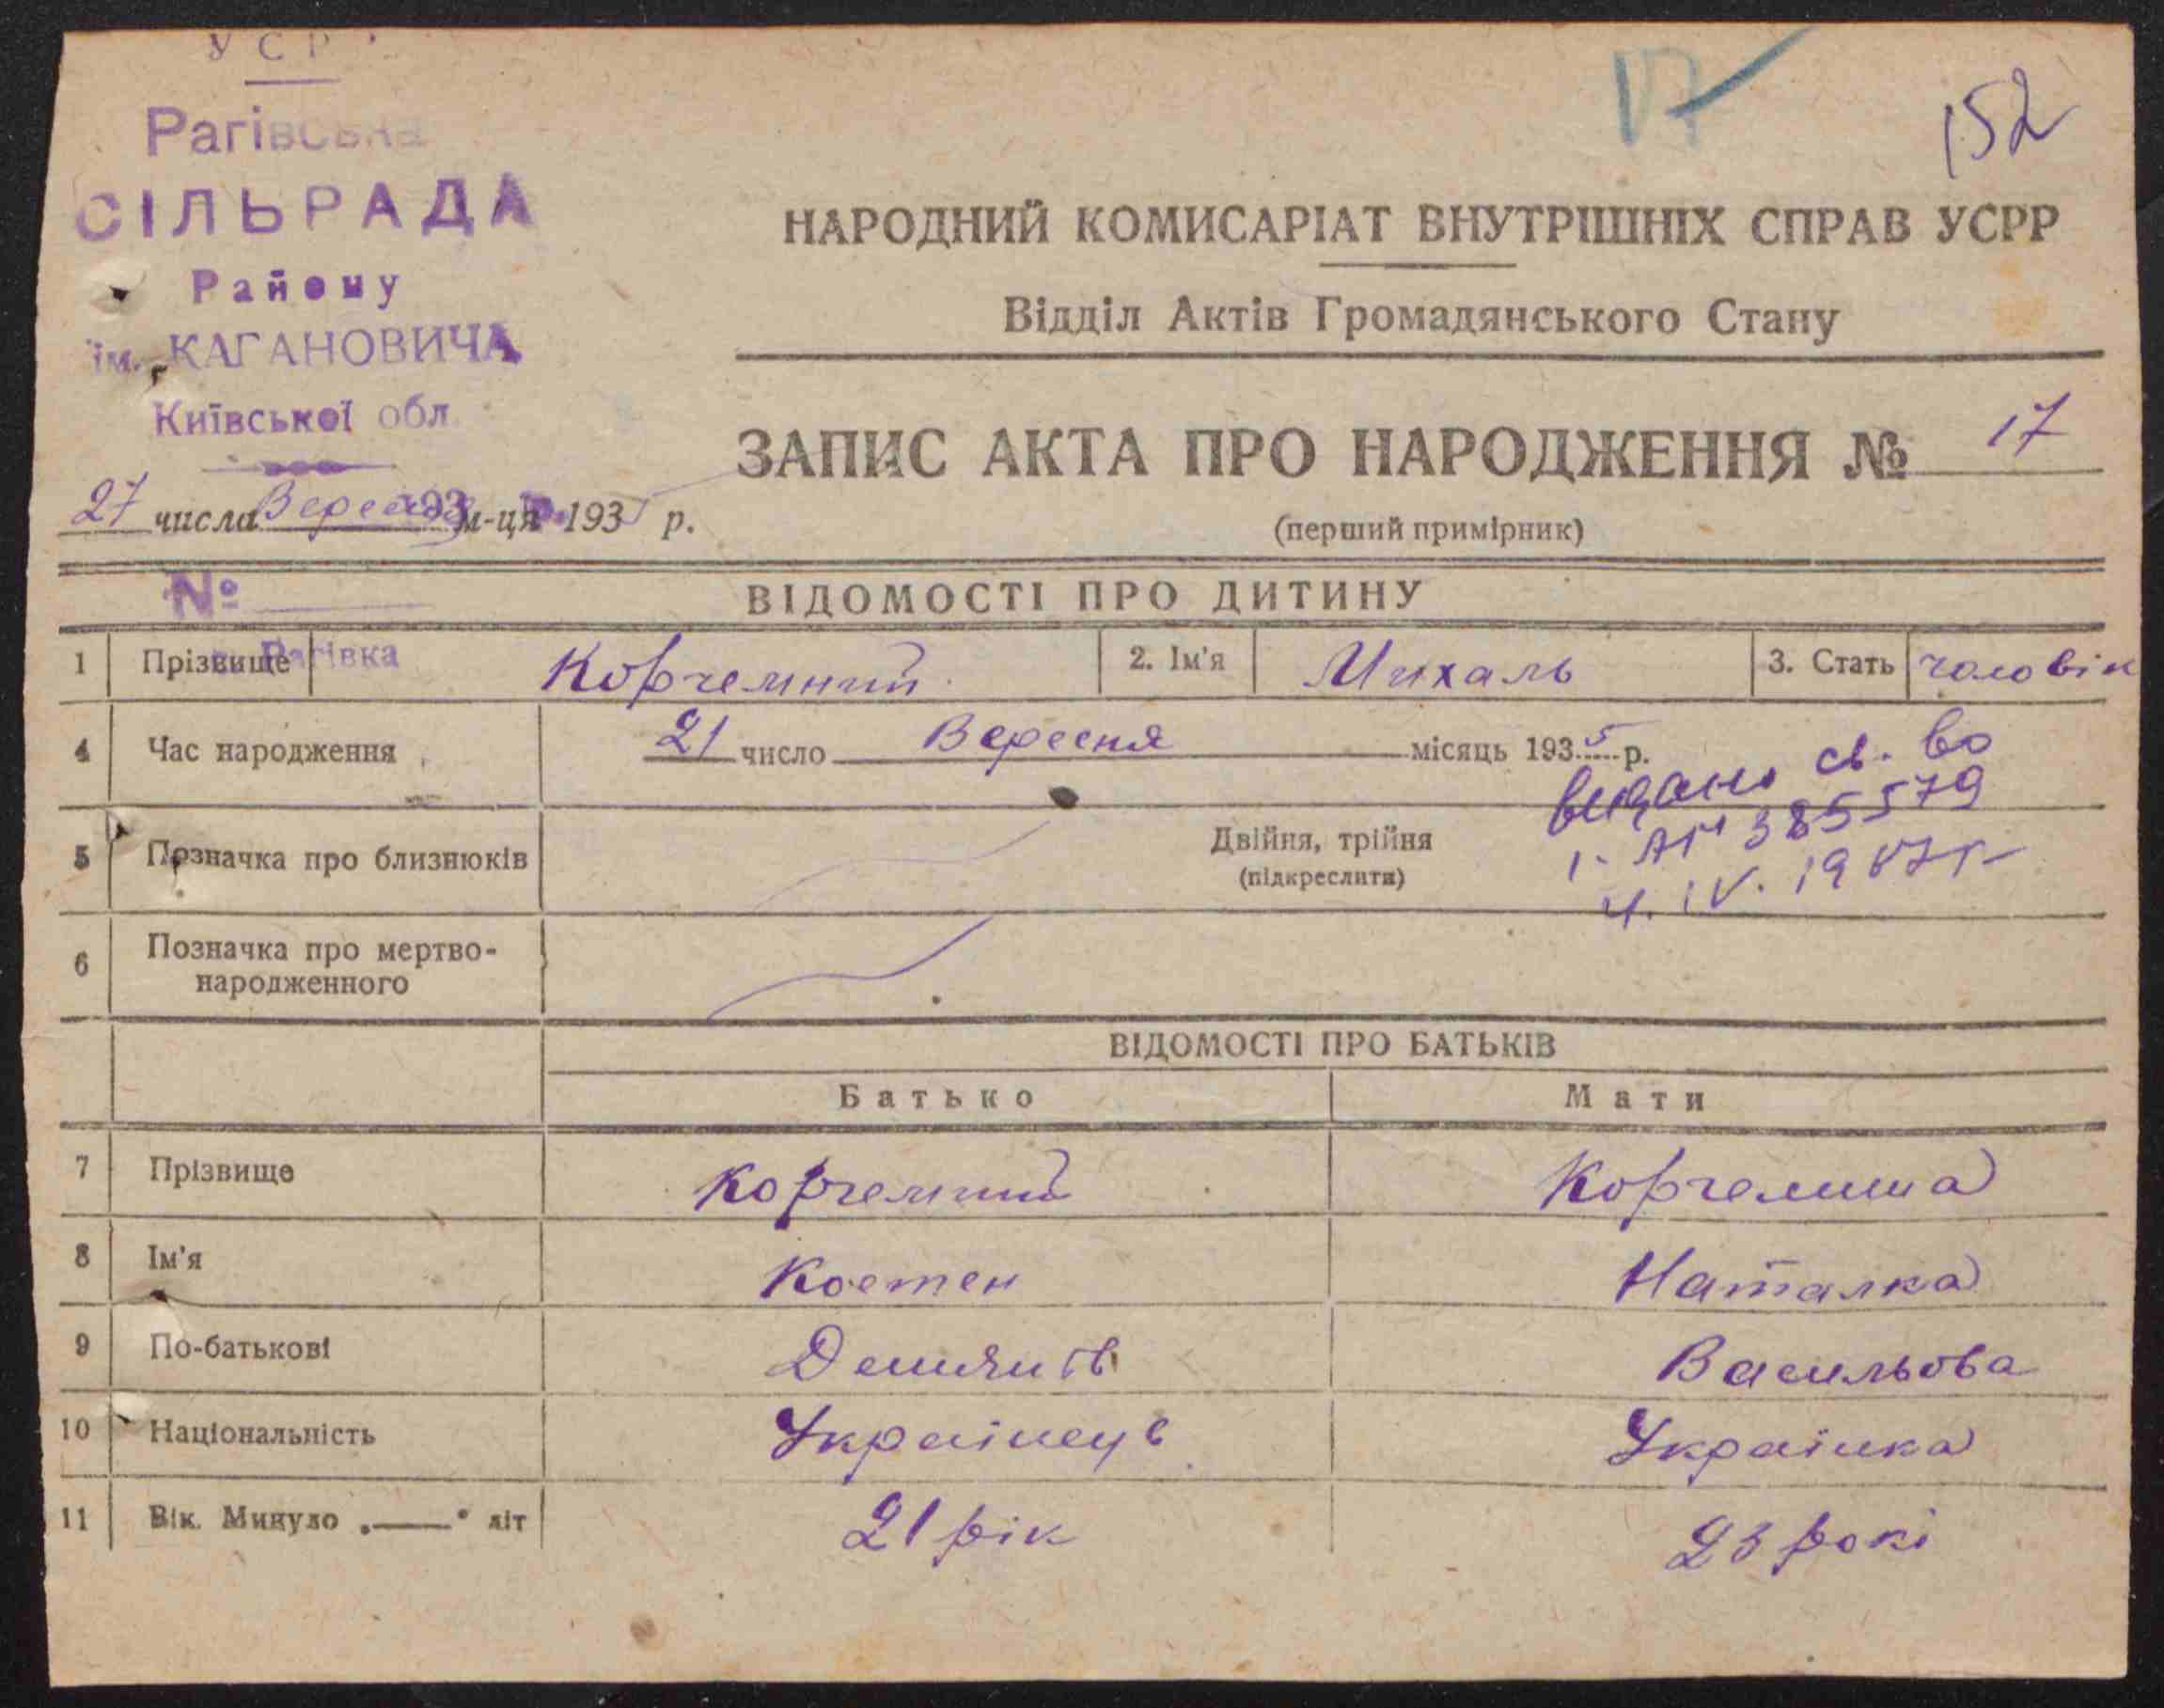 УСРР
Рагівська
СІЛЬРАДА
Району
ім. КАГАНОВИЧА
Київської обл
17
152
НАРОДНИЙ КОМИСАРІАТ ВНУТРІШНІХ СПРАВ УСРР
Відділ Актів Громадянського Стану
ЗАПИС АКТА ПРО НАРОДЖЕННЯ № 17
(перший примірник)
27 числа Вересня м-ця 1935 р.
№
Рагівка
ВІДОМОСТІ ПРО ДИТИНУ
1 Прізвище Корчемний 2. Ім'я Михаль 3. Стать чоловік
4 Час народження 21 число Вересня місяць 1935 р.
видано св. во
І-АГ 385579
4. IV. 1987 р
5 Позначка про близнюків Двійня, трійня
(підкреслити)
6 Позначка про мертво-
народженного
ВІДОМОСТІ ПРО БАТЬКІВ
Батько Мати
7 Прізвище Корчемний Корчемна
8 Ім'я Костен Наталка
9 По-батькові Демянів Васильова
10 Національність Українець Українка
11 Вік. Минуло „——“ літ 21 рік 23 рокі